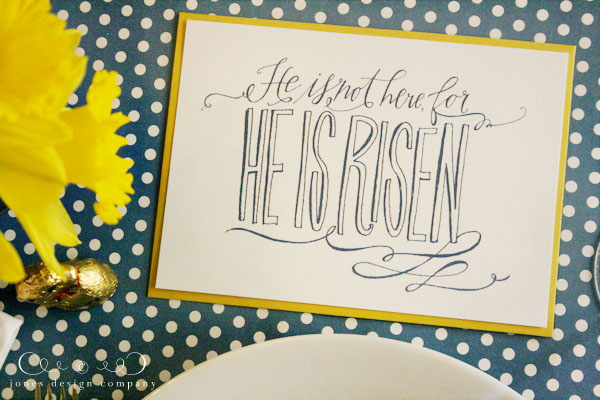 He is not here, for
HE IS RISEN
jones design company